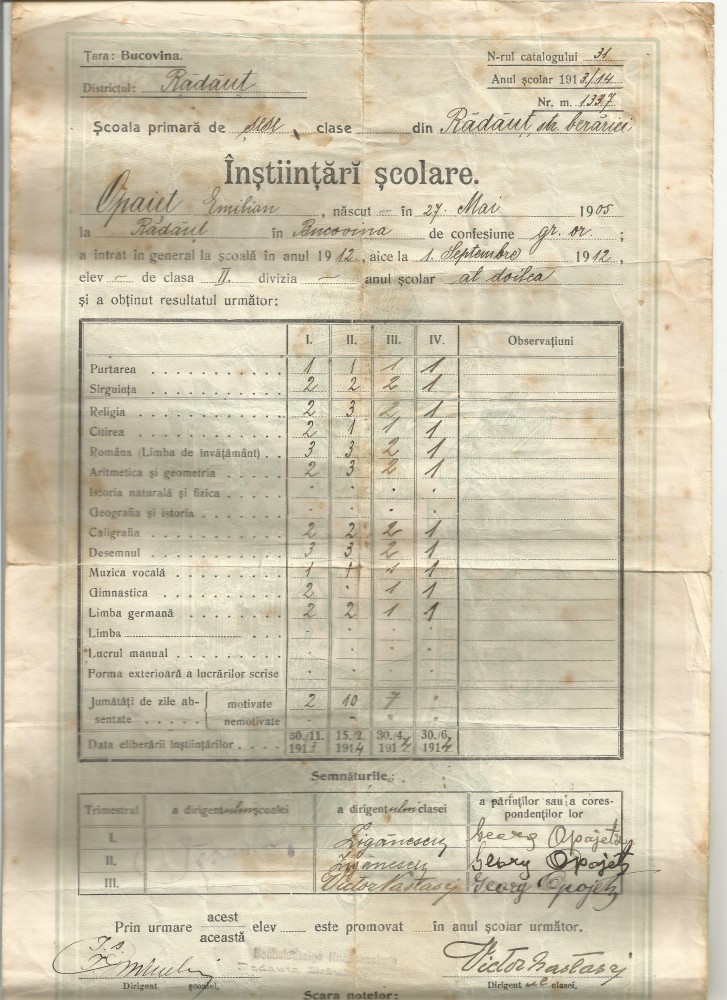 Țara: Bucovina.
N-rul catalogului 31
Anul școlar 1913/14
Districtul: Rădăuț
Nr. m. 1337
Școala primară de clase din Rădăuț, str. berăriei
Înștiințări școlare.
Opaiet Emilian, născut – în 27. Mai 1905
la Rădăuț în Bucovina de confesiune gr. or. ;
a intrat în general la școală în anul 1912, aice la 1. Septembre 1912,
elev – de clasa II. divizia – anul școlar al doilea
și a obținut resultatul următor:
I. II. III. IV. Observațiuni
Purtarea 1 1 1 1
Sirguința 2 2 2 1
Religia 2 3 2 1
Citirea 2 1 1 1
Româna (Limba de învățământ) 3 3 2 1
Aritmetica și geometria 2 3 2 1
Istoria naturală și fizica . . . .
Geografia și istoria . . . .
Caligrafia 2 2 2 1
Desemnul 3 3 2 1
Muzica vocală 1 1 1
Gimnastica 2 . 1 1
Limba germană 2 2 1 1
Limba . . . .
Lucrul manual . . . .
Forma exterioară a lucrărilor scrise . . . .
Jumătăți de zile absentate motivate 2 10 7 .
nemotivate – – . .
Data eliberării înștiințărilor 30./11. 1913 15./2. 1914 30./4. 1914 30./6. 1914
Semnăturile:
Trimestrul a dirigentului școalei a dirigentului clasei a părinților sau a corespondenților lor
I. Zigănescu Georg Opajetz
II. Zigănescu Georg Opajetz
III. Victor Nastasij Georg Opajetz
Prin urmare acest elev este promovat în anul școlar următor.
această
Victor Nastasij
Dirigent școalei. Dirigent clasei.
Scara notelor: